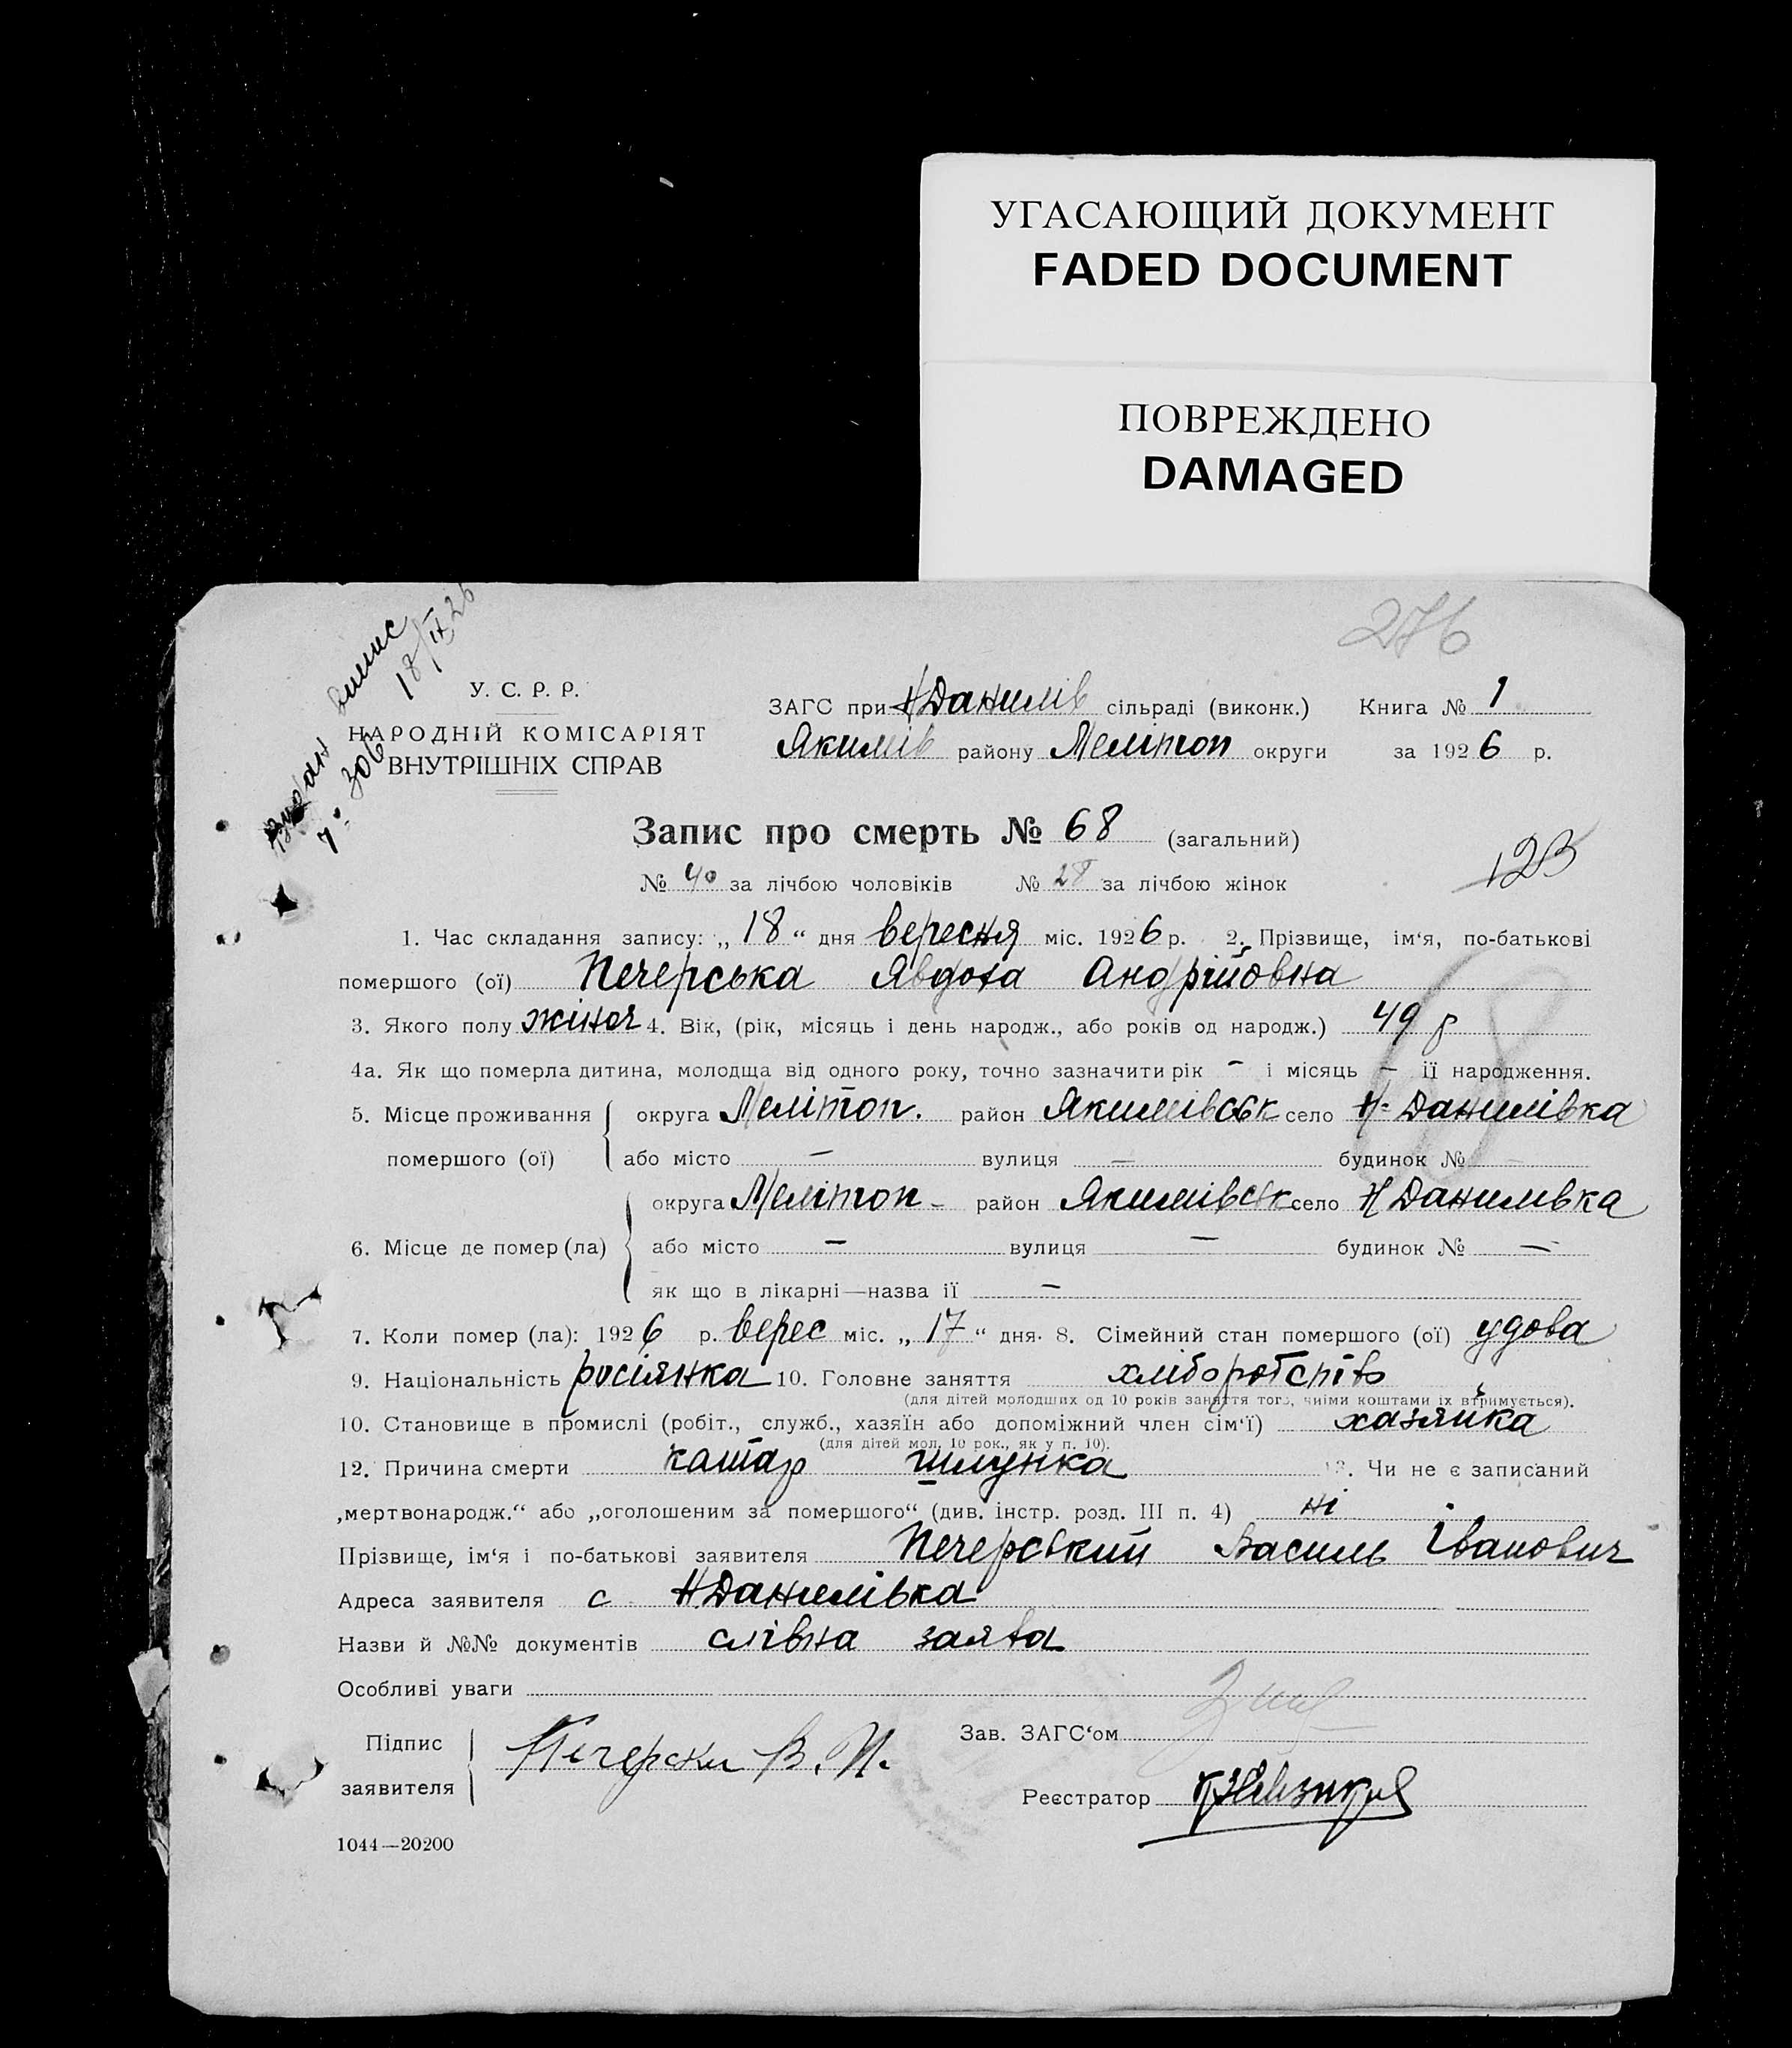 УГАСАЮЩИЙ ДОКУМЕНТ
FADED DOCUMENT
ПОВРЕЖДЕНО
DAMAGED
276
видан випис
№ 306 18/IX 26
У. С. Р. Р.
НАРОДНІЙ КОМІСАРІЯТ
ВНУТРІШНІХ СПРАВ
ЗАГС при Н Данилів сільраді (виконк.) Книга № 1
Якимів району Мелітоп округи за 1926 р.
Запис про смерть № 68 (загальний)
123
№ 40 за лічбою чоловіків № 28 за лічбою жінок
1. Час складання запису: „18“ дня вересня міс. 1926 р. 2. Прізвище, ім‘я, по-батькові
помершого (ої) Печерська Явдоха Андрійовна
3. Якого полу жіноч 4. Вік, (рік, місяць і день народж., або років од народж.) 49 р
68
4а. Як що померла дитина, молодща від одного року, точно зазначити рік – і місяць – її народження.
5. Місце проживання помершого (ої) округа Мелітоп. район Якимівськ село Н- Данилівка
або місто – вулиця – будинок № –
6. Місце де помер (ла) округа Мелітоп – район Якимівськ село Н Данилівка
або місто – вулиця – будинок № –
як що в лікарні—назва її –
7. Коли помер (ла): 1926 р. верес міс. „17“ дня. 8. Сімейний стан помершого (ої) удова
9. Національність росіянка 10. Головне заняття хліборобств
(для дітей молодших од 10 років заняття того, чиїми коштами їх втримується).
10. Становище в промислі (робіт., служб., хазяїн або допоміжний член сім‘ї) хазяйка
(для дітей мол. 10 рок., як у п. 10).
12. Причина смерти катар шлунка 13. Чи не є записаний
„мертвонародж.“ або „оголошеним за помершого“ (див. інстр. розд. III п. 4) ні
Прізвище, ім‘я і по-батькові заявителя Печерський Василь Іванович
Адреса заявителя с Н.Данилівка
Назви й №№ документів слівна заява
Особливі уваги
Підпис заявителя Печерски В. И.
Зав. ЗАГС‘ом
Реєстратор
1044—20200